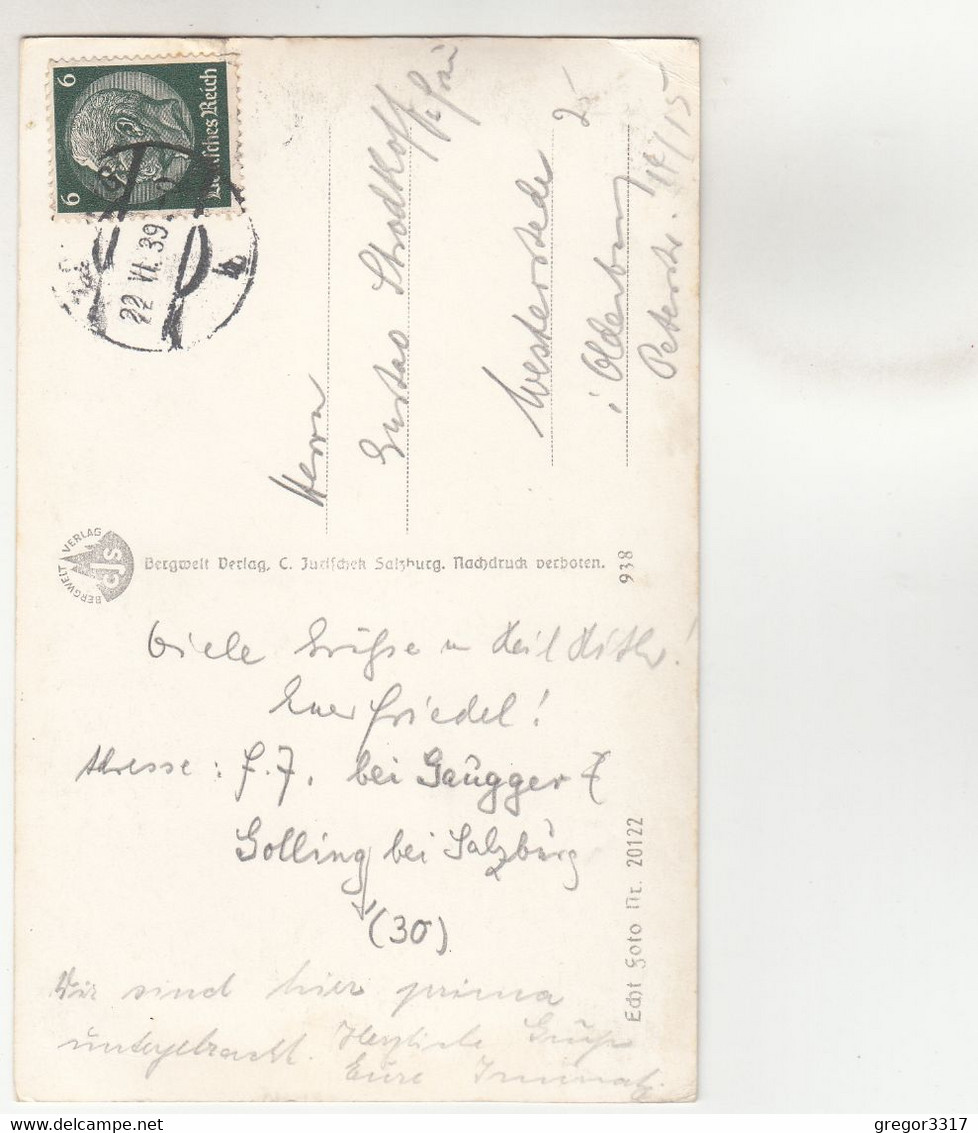 6 6
Deutsches Reich
22 VI. 39
b
Herrn
Gustav
Westerstede
i/Oldenburg
Peterstr. 14/15
BERGWELT VERLAG
CJS
Bergwelt Verlag, C. Jurischek Salzburg. Nachdruck verboten.
938
Viele Grüsse u Heil Hitler!
Euer Friedel!
Adresse: F. J. bei Gaugger
Golling bei Salzburg
(30)
Wir sind hier prima
untergebracht. Herzliche Grüße
Eure
Echt Foto Nr. 20122
© www.delcampe.net
gregor3317